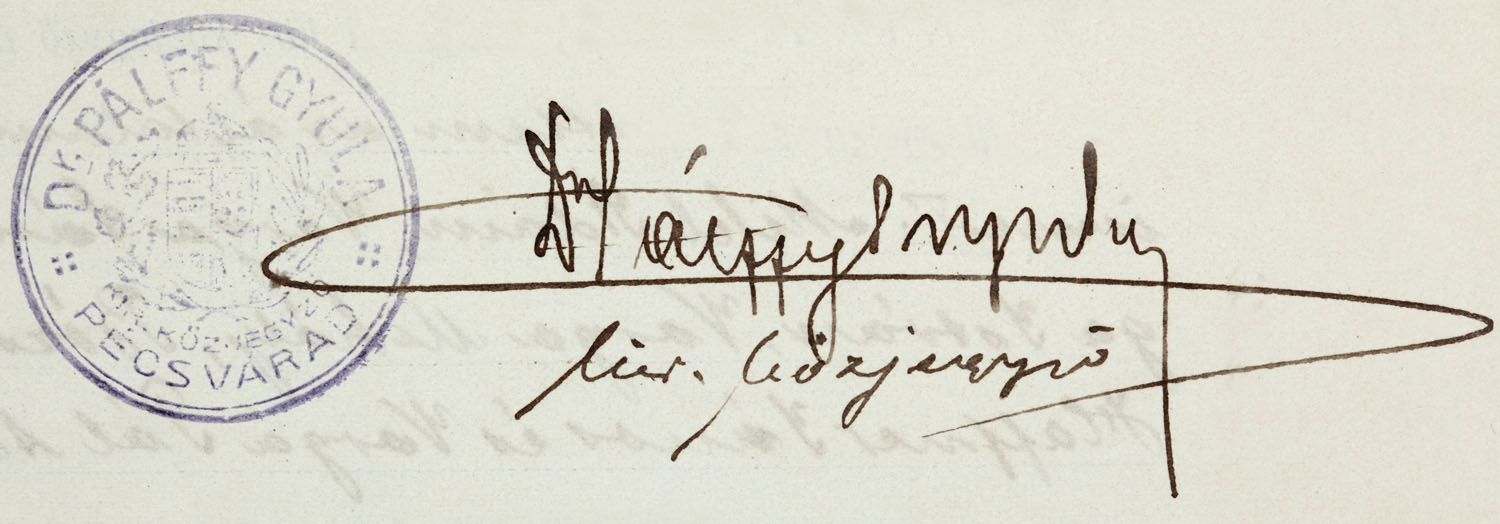 Dr. PÁLFFY GYULA
KIR. KÖZJEGYZŐ
PÉCSVÁRAD
Dr Pálffy Gyula
kir. közjegyző